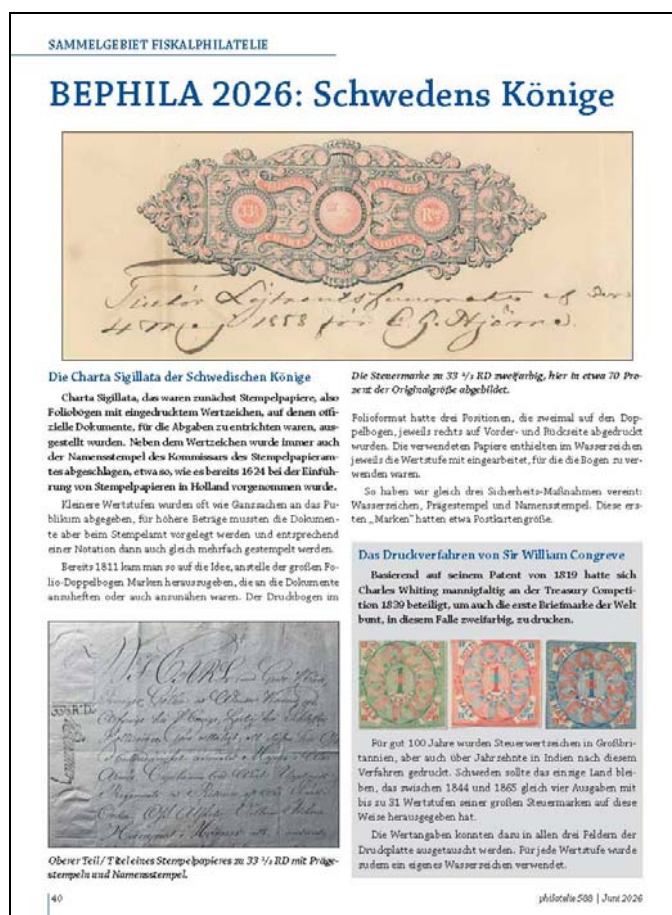 SAMMELGEBIET FISKALPHILATELIE
BEPHILA 2026: Schwedens Könige
33⅓
RIKSD
CHARTA
SIGILL
4 Maj 1858 för C. G. Hjörne.
Die Charta Sigillata der Schwedischen Könige
Charta Sigillata, das waren zunächst Stempelpapiere, also
Foliobögen mit eingedrucktem Wertzeichen, auf denen offi-
zielle Dokumente, für die Abgaben zu entrichten waren, aus-
gestellt wurden. Neben dem Wertzeichen wurde immer auch
der Namensstempel des Kommissars des Stempelpapieram-
tes abgeschlagen, etwa so, wie es bereits 1624 bei der Einfüh-
rung von Stempelpapieren in Holland vorgenommen wurde.
Kleinere Wertstufen wurden oft wie Ganzsachen an das Pu-
blikum abgegeben, für höhere Beträge mussten die Dokumen-
te aber beim Stempelamt vorgelegt werden und entsprechend
einer Notation dann auch gleich mehrfach gestempelt werden.
Bereits 1811 kam man so auf die Idee, anstelle der großen Fo-
lio-Doppelbogen Marken herauszugeben, die an die Dokumente
anzuheften oder auch anzunähen waren. Der Druckbogen im
Oberer Teil / Titel eines Stempelpapieres zu 33 ¹/₃ RD mit Präge-
stempeln und Namensstempel.
Die Steuermarke zu 33 ¹/₃ RD zweifarbig, hier in etwa 70 Pro-
zent der Originalgröße abgebildet.
Folioformat hatte drei Positionen, die zweimal auf den Dop-
pelbogen, jeweils rechts auf Vorder- und Rückseite abgedruckt
wurden. Die verwendeten Papiere enthielten im Wasserzeichen
jeweils die Wertstufe mit eingearbeitet, für die die Bogen zu ver-
wenden waren.
So haben wir gleich drei Sicherheits-Maßnahmen vereint:
Wasserzeichen, Prägestempel und Namensstempel. Diese ers-
ten „Marken" hatten etwa Postkartengröße.
Das Druckverfahren von Sir William Congreve
Basierend auf seinem Patent von 1819 hatte sich
Charles Whiting mannigfaltig an der Treasury Competi-
tion 1839 beteiligt, um auch die erste Briefmarke der Welt
bunt, in diesem Falle zweifarbig, zu drucken.
1 1 1
Für gut 100 Jahre wurden Steuerwertzeichen in Großbri-
tannien, aber auch über Jahrzehnte in Indien nach diesem
Verfahren gedruckt. Schweden sollte das einzige Land blei-
ben, das zwischen 1844 und 1865 gleich vier Ausgaben mit
bis zu 31 Wertstufen seiner großen Steuermarken auf diese
Weise herausgegeben hat.
Die Wertangaben konnten dazu in allen drei Feldern der
Druckplatte ausgetauscht werden. Für jede Wertstufe wurde
zudem ein eigenes Wasserzeichen verwendet.
40
philatelie 588 | Juni 2026